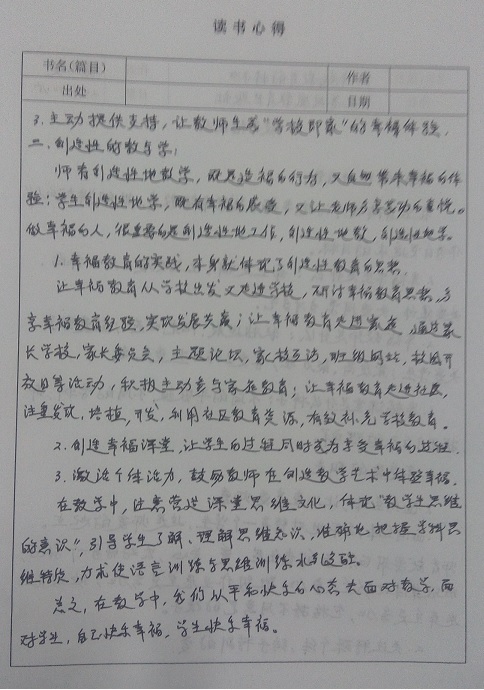 读书心得
书名(篇目) 作者
出处 日期
3. 主动提供支持，让教师生要"学校即家"的幸福体验。
二、创造性的教与学：
师者创造性地教学，既是造福的行为，又自然带来幸福的体
验；学生创造性地学，既有幸福的感受，又让老师分享劳动的喜悦。
做幸福的人，很重要的是创造性地工作，创造性地教，创造性地学。
1. 幸福教育的实践，本身就体现了创造性教育的思想。
让幸福教育从学校出发又走进学校，研讨幸福教育思想，分
享幸福教育经验，实现发展共赢；让幸福教育走进家庭，通过家
长学校，家长委员会，主题论坛，家校互访，班级网站，校园开
放日等活动，积极主动参与家庭教育；让幸福教育走进社区，
注重发现、培植、开发、利用社区教育资源，有效补充学校教育。
2. 创造幸福课堂，让学生的过程同时成为享受幸福的过程。
3. 激活个体活力，鼓励教师在创造教学艺术中体验幸福。
在教学中，注意营造课堂思维文化，体现"教学生思维
的意识"，引导学生了解、理解思维知识，准确地把握学科思
维特质，力求使语言训练与思维训练水乳交融。
总之，在教学中，我们以平和快乐的心态去面对教学，面
对学生，自己快乐幸福，学生快乐幸福。